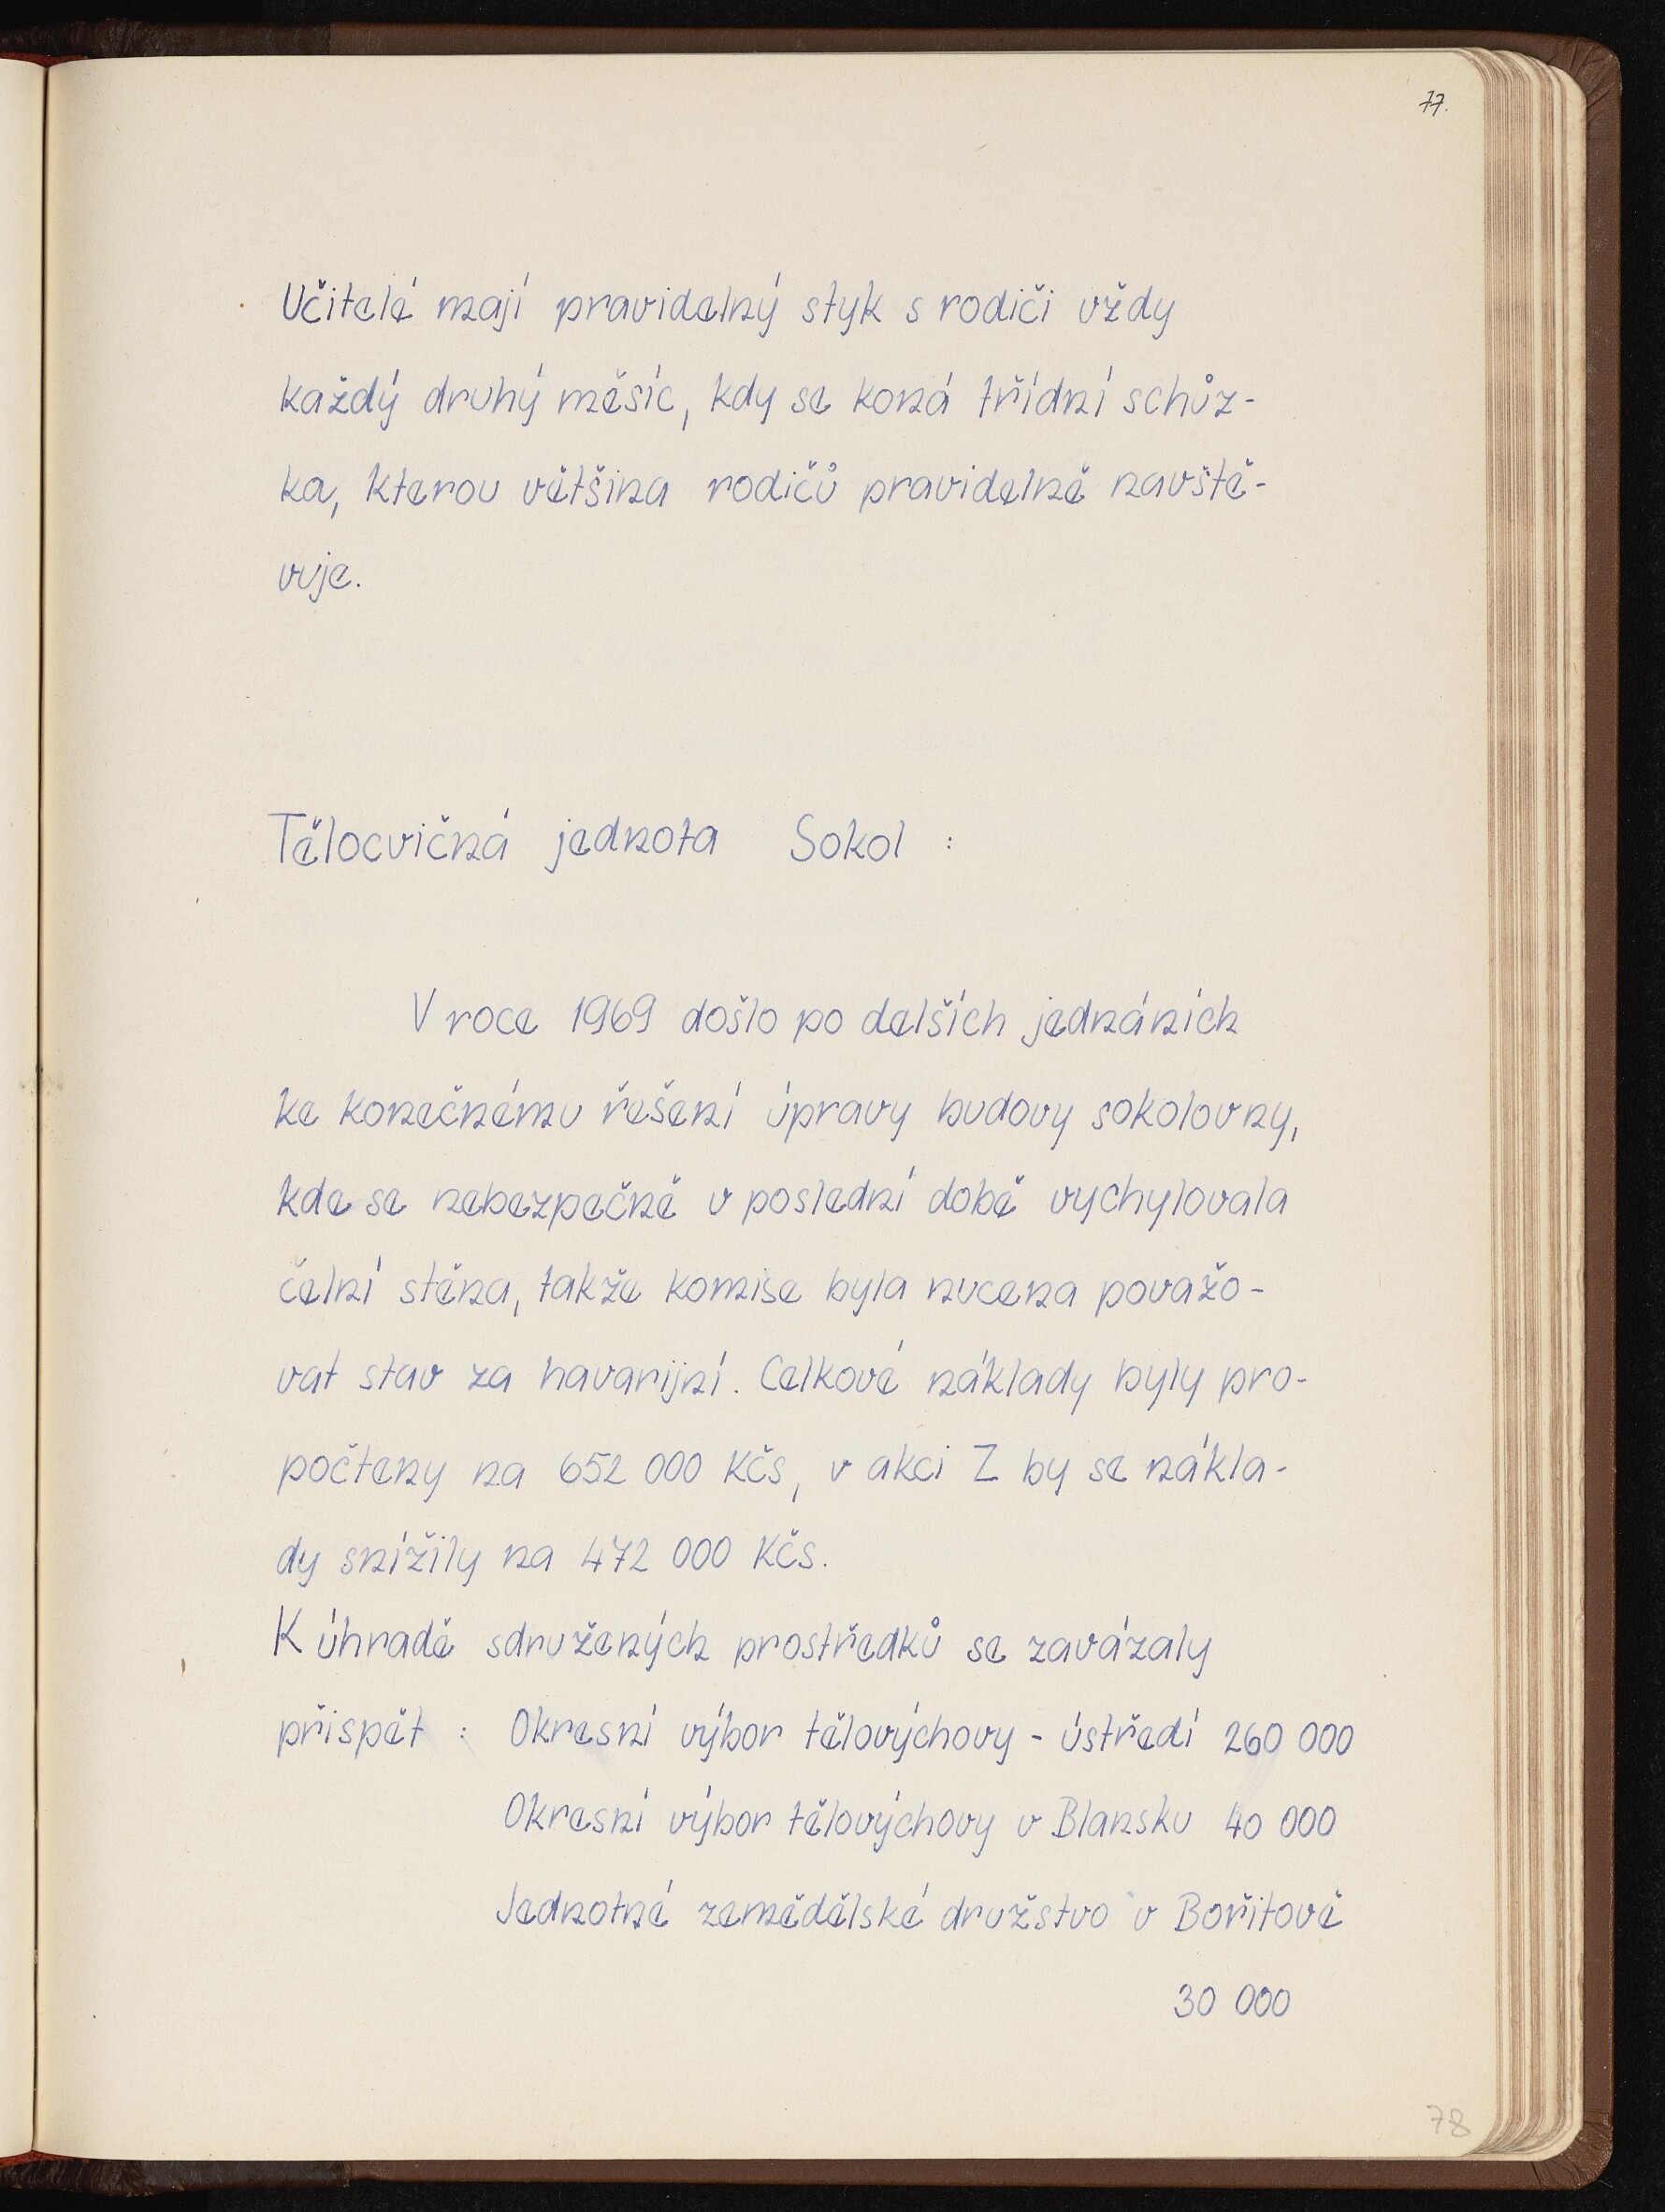 77.
Učitelé mají pravidelný styk s rodiči vždy
každý druhý měsíc, kdy se koná třídní schůz-
ka, kterou většina rodičů pravidelně navště-
vuje.
Tělocvičná jednota Sokol :
V roce 1969 došlo po delších jednáních
ke konečnému řešení úpravy budovy sokolovny,
kde se nebezpečně v poslední době vychylovala
čelní stěna, takže komise byla nucena považo-
vat stav za havarijní. Celkové náklady byly pro-
počteny na 652 000 Kčs, v akci Z by se nákla-
dy snížily na 472 000 Kčs.
K úhradě sdružených prostředků se zavázaly
přispět : Okresní výbor tělovýchovy - ústředí 260 000
Okresní výbor tělovýchovy v Blansku 40 000
Jednotné zemědělské družstvo v Bořitově
30 000
78